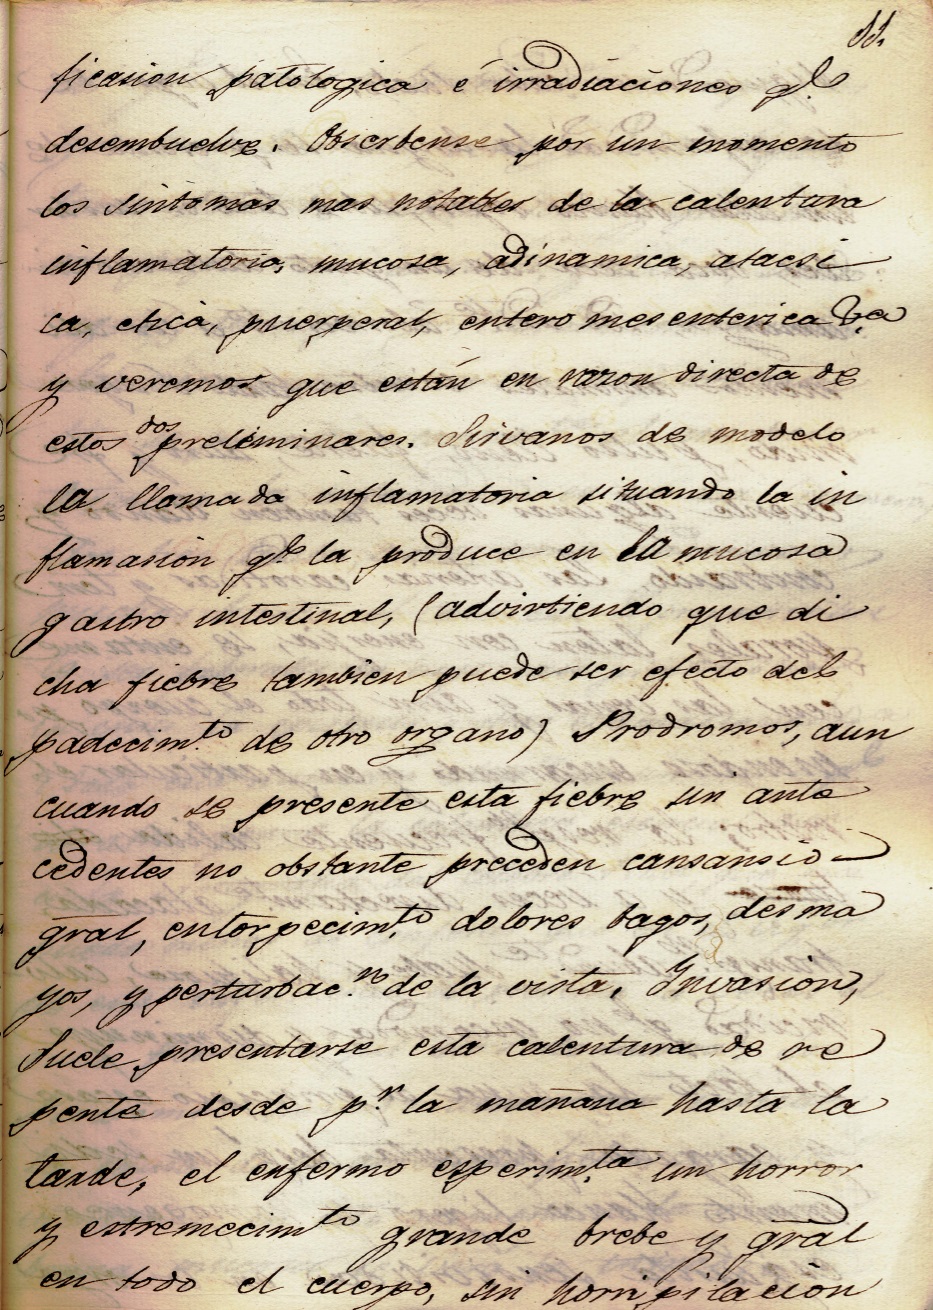 11.
ficasion patologica é irradiaciones q.e
desembuelve. Obserbense por un momento
los sintomas mas notables de la calentura
inflamatoria, mucosa, adinamica, atacsi
ca, etica, puerperal, entero mesenterica &.a
y veremos que están en razon directa de
estos dos preliminares. Sirvanos de modelo
la llamada inflamatoria situando la in
flamasion q.e la produce en la mucosa
gastro intestinal, (advirtiendo que di
cha fiebre tambien puede ser efecto del
padecim.to de otro organo) Prodromos, aun
cuando se presente esta fiebre sin ante
cedentes no obstante preceden cansansio
gral, entorpecim.to dolores bagos, desma
yos, y perturbac.n de la vista. Invasion,
Suele presentarse esta calentura de re
pente desde p.r la mañana hasta la
tarde, el enfermo esperim.ta un horror
y estremecim.to grande brebe y gral
en todo el cuerpo, sin horripilacion